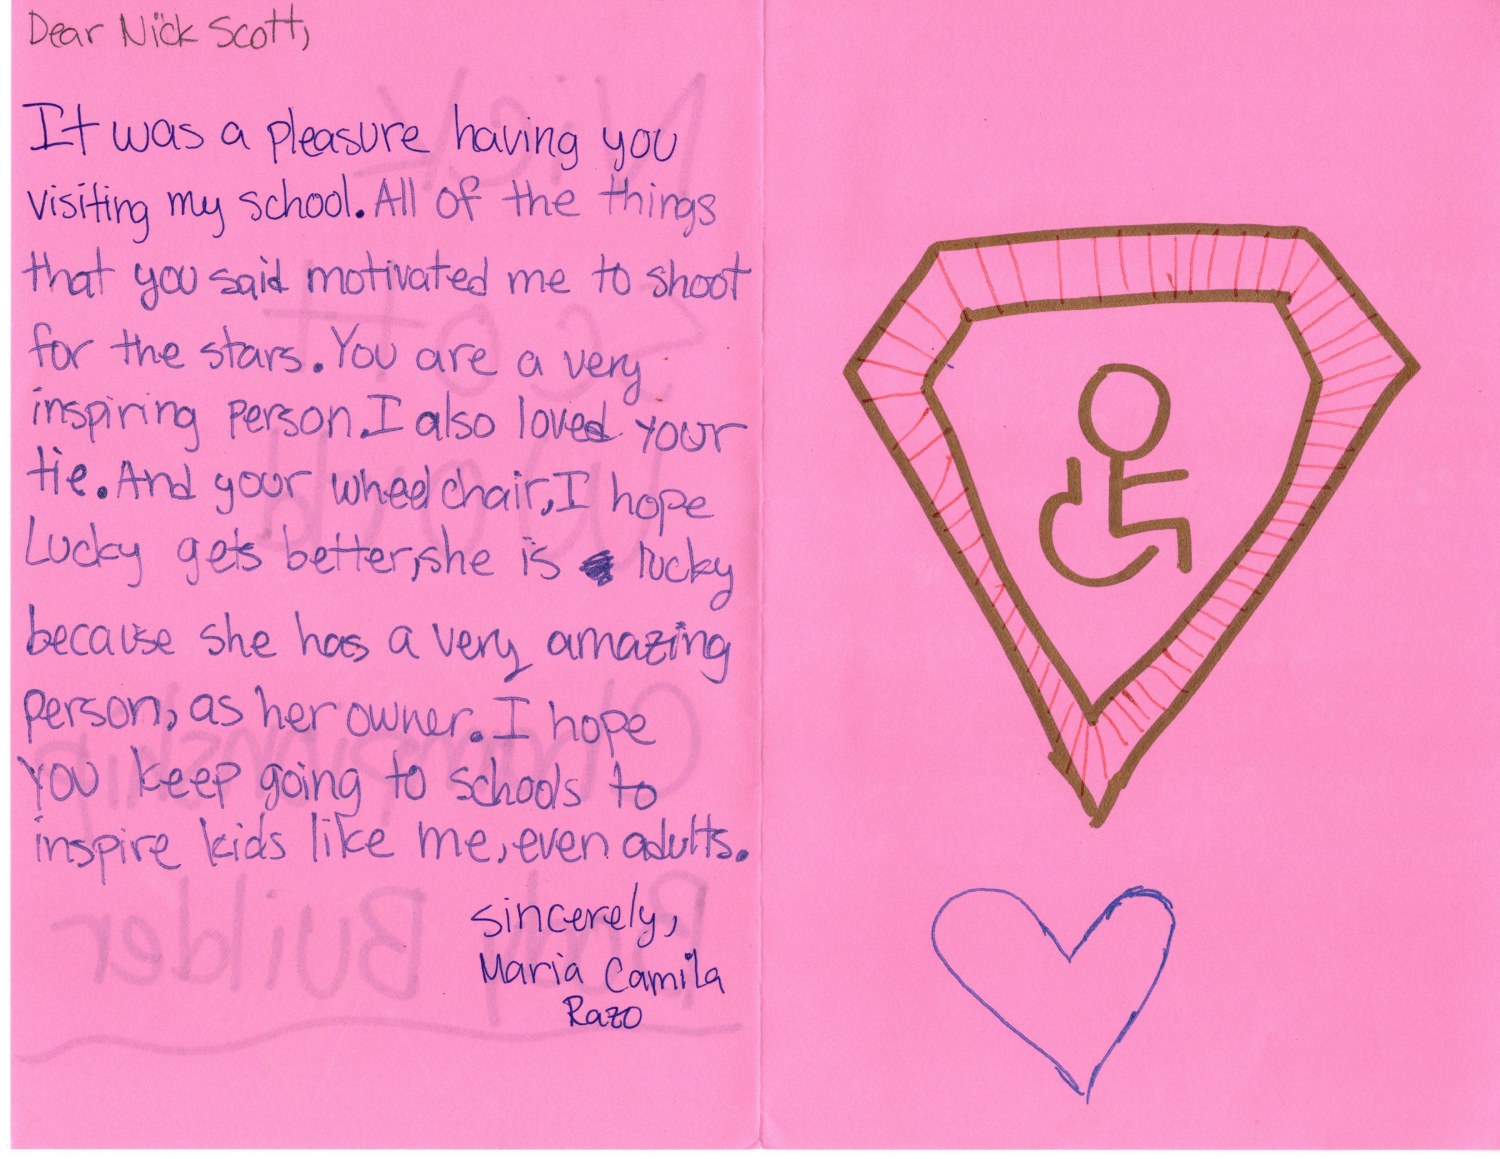 Dear Nick Scott,
It was a pleasure having you
visiting my school. All of the things
that you said motivated me to shoot
for the stars. You are a very
inspiring person. I also loved your
tie. And your wheel chair, I hope
Lucky gets better, she is lucky
because she has a very amazing
person, as her owner. I hope
you keep going to schools to
inspire kids like me, even adults.
sincerely,
Maria Camila
Razo
Nick
Scott
World
Championship
Body Builder